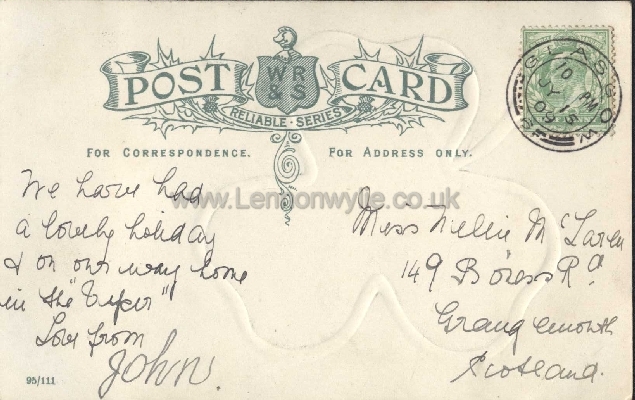 POST CARD
WR
& S
RELIABLE · SERIES
FOR CORRESPONDENCE. FOR ADDRESS ONLY.
GLASGOW
10 PM
JY 15
09
www.Lemonwylie.co.uk
We have had
a lovely holiday
& on our way home
in the "Viper"
Love from
John.
Miss Nellie McLaren
149 Boness Rd
Grangemouth
Scotland.
95/111